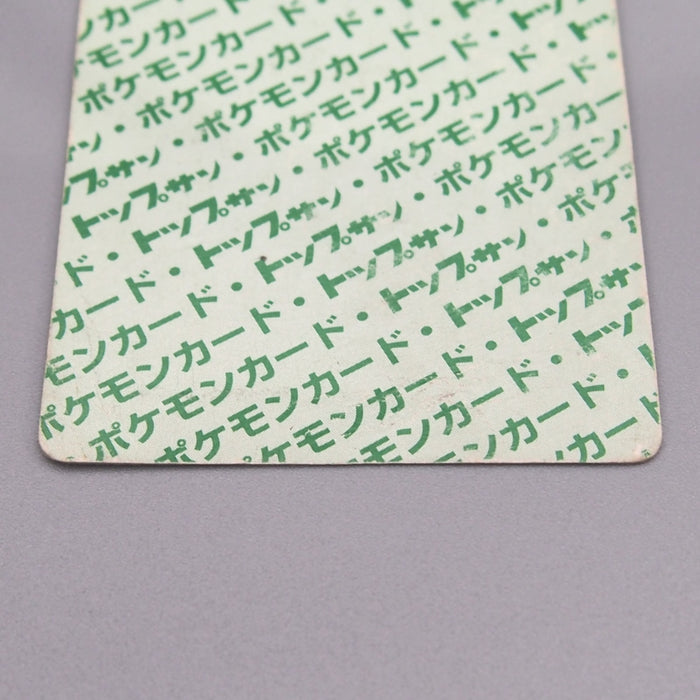 ンカード・
ポケモンカード・
・ポケモンカード・
プサン・ポケモンカード・
トップサン・ポケモンカード・
ド・トップサン・ポケモンカード・
カード・トップサン・ポケモンカード
モンカード・トップサン・ポケモンカ
ポケモンカード・トップサン・ポケモ
ポケモンカード・トップサン・ポケ
ポケモンカード・トップサン・
ケモンカード・トップサン
モンカード・トッ
ンカード・